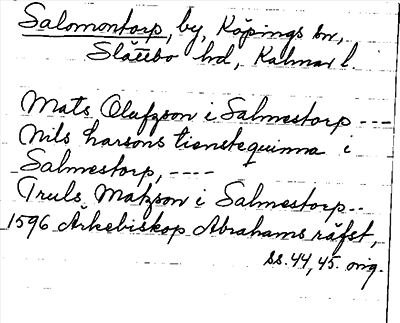 Salomontorp, by, Köpings sn,
Slättbo hd, Kalmar l.
Mats Olafzson i Salmestorp ---
Nils Larsons tienstequinna i
Salmestorp, ----
Truls Matzson i Salmestorp--
1596 Ärkebiskop Abrahams räfst,
ss. 44, 45. orig.